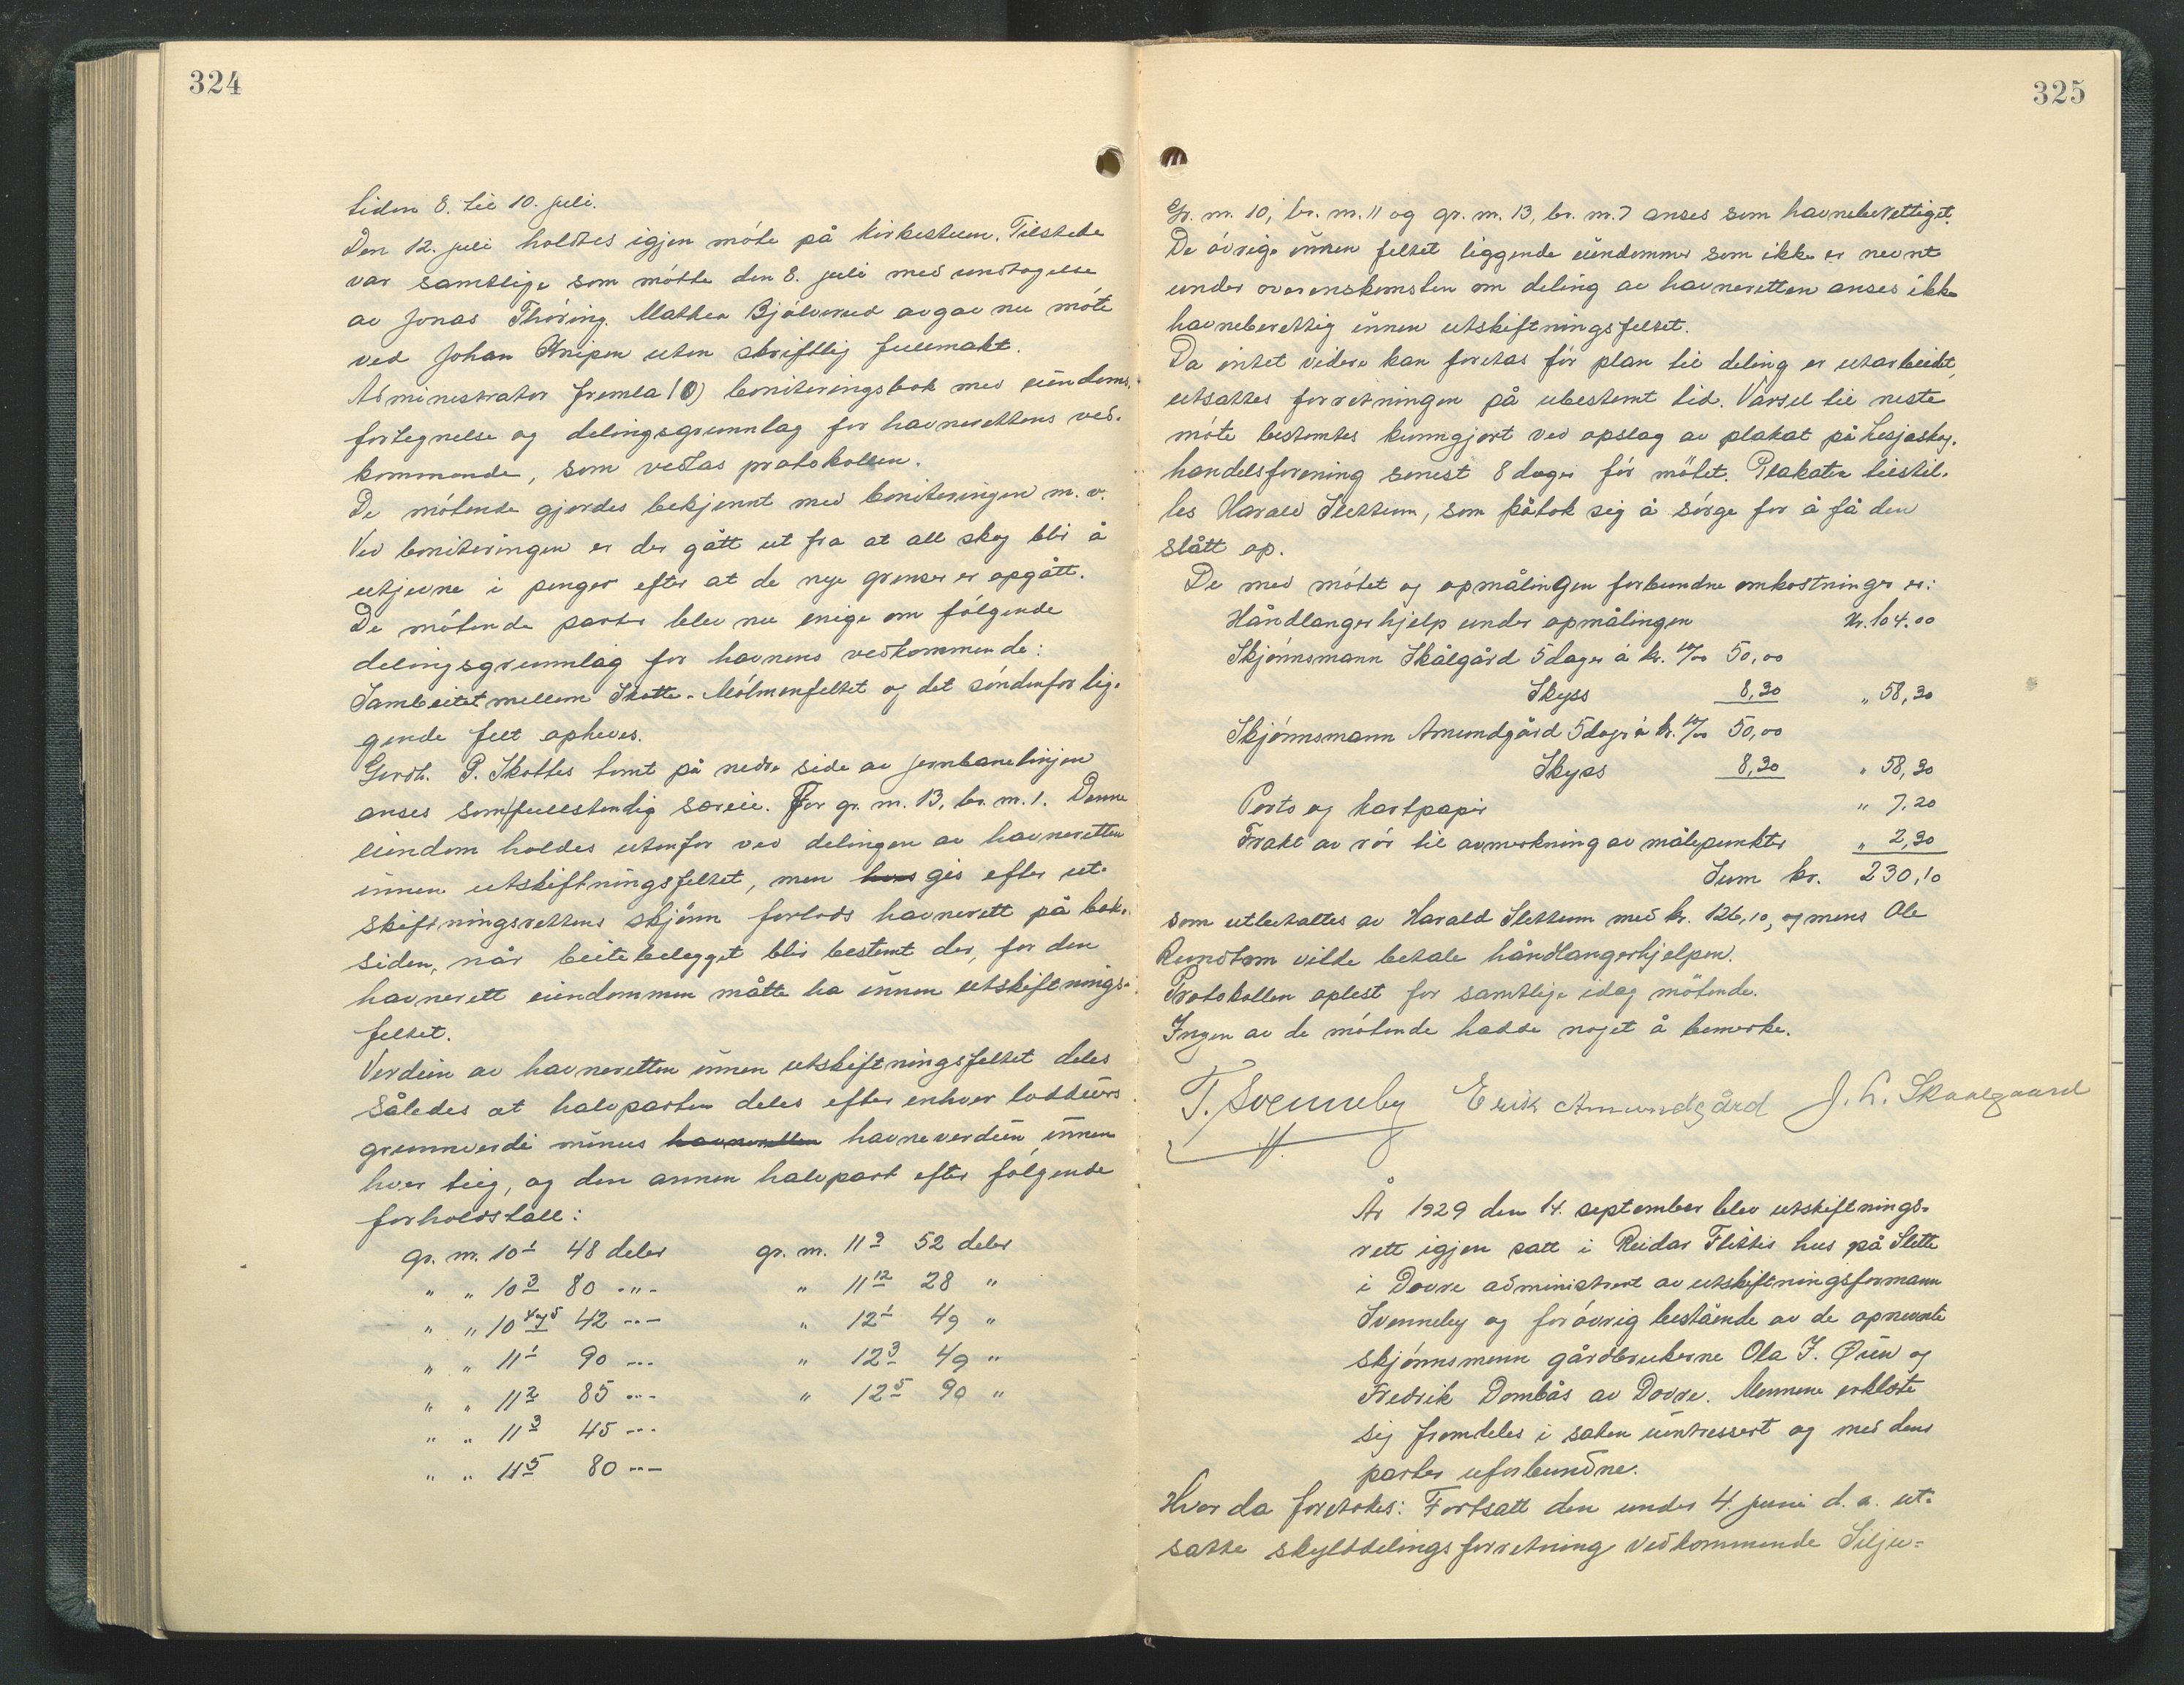 324
tiden 8. til 10. juli.
Den 12. juli holdtes igjen möte på Kirkestuen. Tilstede
var samtlige som mötte den 8. juli med undtagelse
av Jonas Thöring. Mathea Bjölverud avgav nu möte
ved Johan Knipen uten skriftlig fullmakt.
Administrator fremla (0) boniteringsbok med eiendoms-
fortegnelse og delingsgrunnlag for havnerettens ved-
kommende, som vedlas protokollen.
De mötende gjordes bekjennt med boniteringen m. v.
Ved boniteringen er der gått ut fra at all skog blir å
utjevne i penger efter at de nye grenser er opgått.
De mötende parter blev nu enige om fölgende
delingsgrunnlag for havnens vedkommende:
Sambeitet mellem Skotte-Mölmenfeltet og det söndenfor lig-
gende felt opheves.
Gerdt. P. Skottes tomt på nedre side av jernbanelinjen
anses som fullstendig særeie. For gr. nr. 13, br. nr. 1. Denne
eiendom holdes utenfor ved delingen av havneretten
innen utskiftningsfeltet, men hvis gis efter ut-
skiftningsrettens skjönn forlods havnerett på bak-
siden, når beitebelegget blir bestemt der, for den
havnerett eiendommen måtte ha innen utskiftnings-
feltet.
Verdien av havneretten innen utskiftningsfeltet deles
således at halvparten deles efter enhver lotteiers
grunnverdi minus havneretten havneverdien innen
hver teig, og den annen halvpart efter fölgende
forholdstall:
gr. nr. 10 1 48 deler gr. nr. 11 9 52 deler
" " 10 3 80 -"- " 11 12 28 "
" " 10 4 og 5 42 -"- " 12 1 49 "
" " 11 1 90 -"- " 12 3 49 "
" " 11 2 85 -"- " 12 5 90 "
" " 11 3 45 -"-
" " 11 5 80 -"-
325
Gr. nr. 10, br. nr. 11 og gr. nr. 13, br. nr. 7 anses som havneberettiget.
De övrige innen feltet liggende eiendommer som ikke er nevnt
under overenskomsten om deling av havneretten anses ikke
havneberettig innen utskiftningsfeltet.
Da intet videre kan foretas för plan til deling er utarbeidet,
utsattes forretningen på ubestemt tid. Varsel til neste
möte bestemtes kunngjort ved opslag av plakat på Lesjaskog.
handelsforening senest 8 dager för mötet. Plakaten tilstil-
les Harald Slettum, som påtok sig å sörge for å få den
slått op.
De med mötet og opmålingen forbundne omkostninger er:
Håndlangerhjelp under opmålingen Kr. 104.00
Skjönnsmann Skålgård 5 dager á kr. 10/00 50,00
Skyss 8,30 " 58,30
Skjönnsmann Amundgård 5 dager á kr. 10/00 50,00
Skyss 8,30 " 58,30
Porto og kartpapir " 7,20
Frakt av rör til avmerkning av målepunkter " 2,30
Sum kr. 230,10
som utbetaltes av Harald Slettum med kr. 126,10, og mens Ole
Rundtom vilde betale håndlangerhjelpen.
Protokollen oplest for samtlige idag mötende.
Ingen av de mötende hadde noget å bemerke.
T. Svenneby Erik Amundgård J. L. Skaalgaard
År 1929 den 14. september blev utskiftnings-
rett igjen satt i Reidar Flittis hus på Slette
i Dovre administrert av utskiftningsformann
Svenneby og forövrig bestående av de opnevnte
skjönnsmenn gårdbrukerne Ola J. Øien og
Fredrik Dombås av Dovre. Mennene erklærte
sig fremdeles i saken uinteressert og med dens
parter uforbundne.
Hvor da foretokes: Fortsatt den under 4. juni d. a. ut-
satte skylddelingsforretning vedkommende Silju-